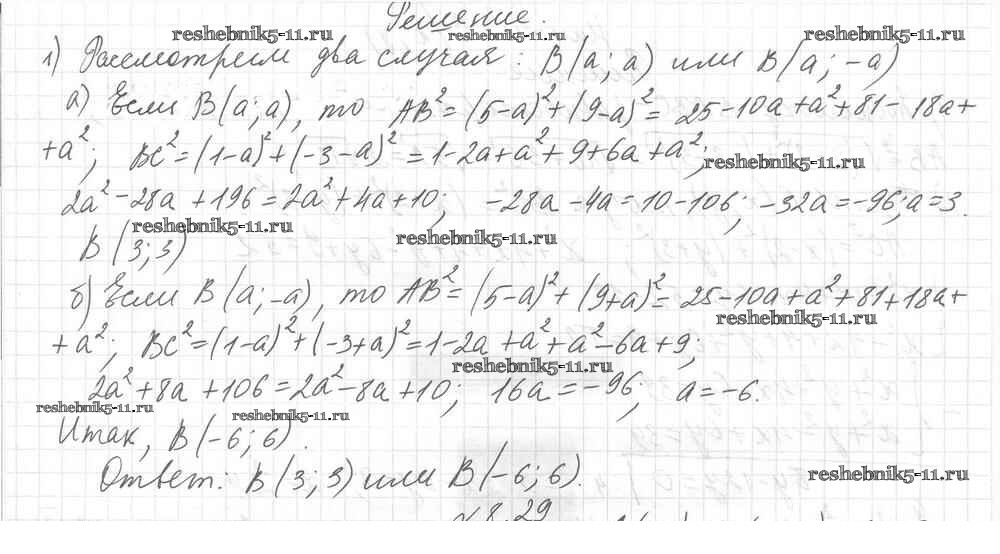 Решение.
reshebnik5-11.ru reshebnik5-11.ru reshebnik5-11.ru
1) Рассмотрим два случая: B(a; a) или B(a; -a)
а) Если B(a; a), то AB²=(5-a)²+(9-a)²=25-10a+a²+81-18a+
+a²; BC²=(1-a)²+(-3-a)²=1-2a+a²+9+6a+a²;
reshebnik5-11.ru
2a²-28a+196=2a²+4a+10; -28a-4a=10-106; -32a=-96; a=3.
reshebnik5-11.ru reshebnik5-11.ru
B(3; 3)
б) Если B(a; -a), то AB²=(5-a)²+(9+a)²=25-10a+a²+81+18a+
reshebnik5-11.ru
+a²; BC²=(1-a)²+(-3+a)²=1-2a+a²+a²-6a+9;
reshebnik5-11.ru
2a²+8a+106=2a²-8a+10; 16a=-96; a=-6.
reshebnik5-11.ru reshebnik5-11.ru
Итак, B(-6; 6).
Ответ: B(3; 3) или B(-6; 6).
reshebnik5-11.ru